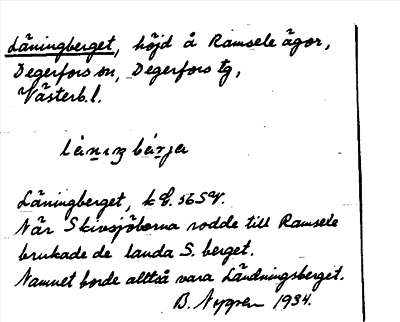 Låningberget, höjd å Ramsele ägor,
Degerfors sn, Degerfors tg,
Västerb. l.
Låningberget, k
När Skivsjöborna rodde till Ramsele
brukade de landa S. berget.
Namnet borde alltså vara Ländningsberget.
B. Nygren 1934.